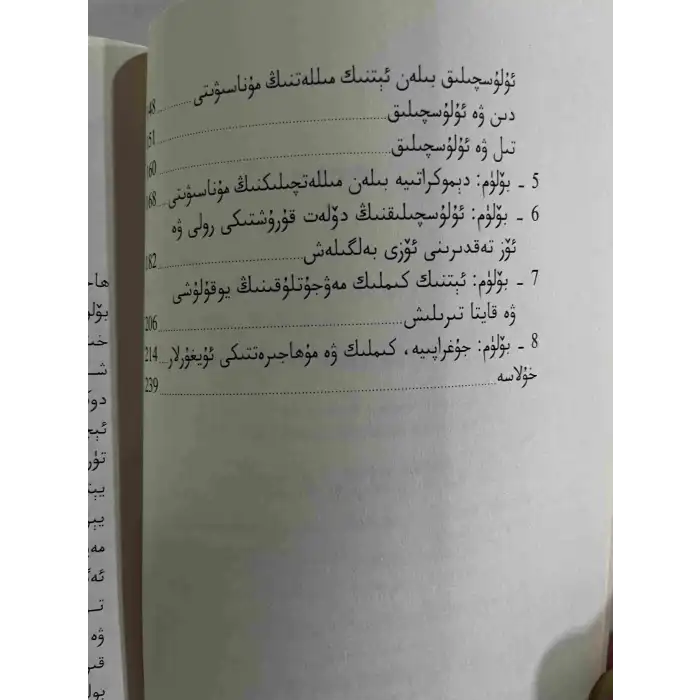 ئۇلۇسچىلىق بىلەن ئېتنىك مىللەتنىڭ مۇناسىۋىتى ........ 148
دىن ۋە ئۇلۇسچىلىق ........ 151
تىل ۋە ئۇلۇسچىلىق ........ 160
5 ـ بۆلۈم: دېموكراتىيە بىلەن مىللەتچىلىكنىڭ مۇناسىۋىتى 168
6 ـ بۆلۈم: ئۇلۇسچىلىقنىڭ دۆلەت قۇرۇشتىكى رولى ۋە
ئۆز تەقدىرىنى ئۆزى بەلگىلەش ........ 182
7 ـ بۆلۈم: ئېتنىك كىملىك مەۋجۇتلۇقىنىڭ يوقۇلۇشى
ۋە قايتا تىرىلىش ........ 206
8 ـ بۆلۈم: جۇغراپىيە، كىملىك ۋە مۇھاجىرەتتىكى ئۇيغۇرلار ... 214
خۇلاسە ........ 239